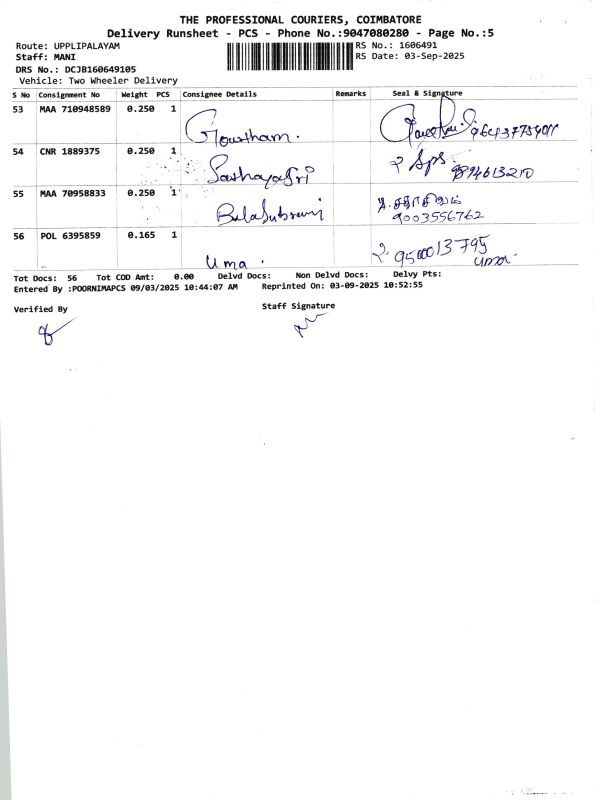 THE PROFESSIONAL COURIERS, COIMBATORE
Delivery Runsheet - PCS - Phone No.:9047080280 - Page No.:5
Route: UPPLIPALAYAM RS No.: 1606491
Staff: MANI RS Date: 03-Sep-2025
DRS No.: DCJB160649105
Vehicle: Two Wheeler Delivery
S No Consignment No Weight PCS Consignee Details Remarks Seal & Signature
53 MAA 710948589 0.250 1
Gowtham.
54 CNR 1889375 0.250 1
55 MAA 70958833 0.250 1
9003556762
56 POL 6395859 0.165 1
Uma. 9500013795
uma.
Tot Docs: 56 Tot COD Amt: 0.00 Delvd Docs: Non Delvd Docs: Delvy Pts:
Entered By :POORNIMAPCS 09/03/2025 10:44:07 AM Reprinted On: 03-09-2025 10:52:55
Verified By Staff Signature